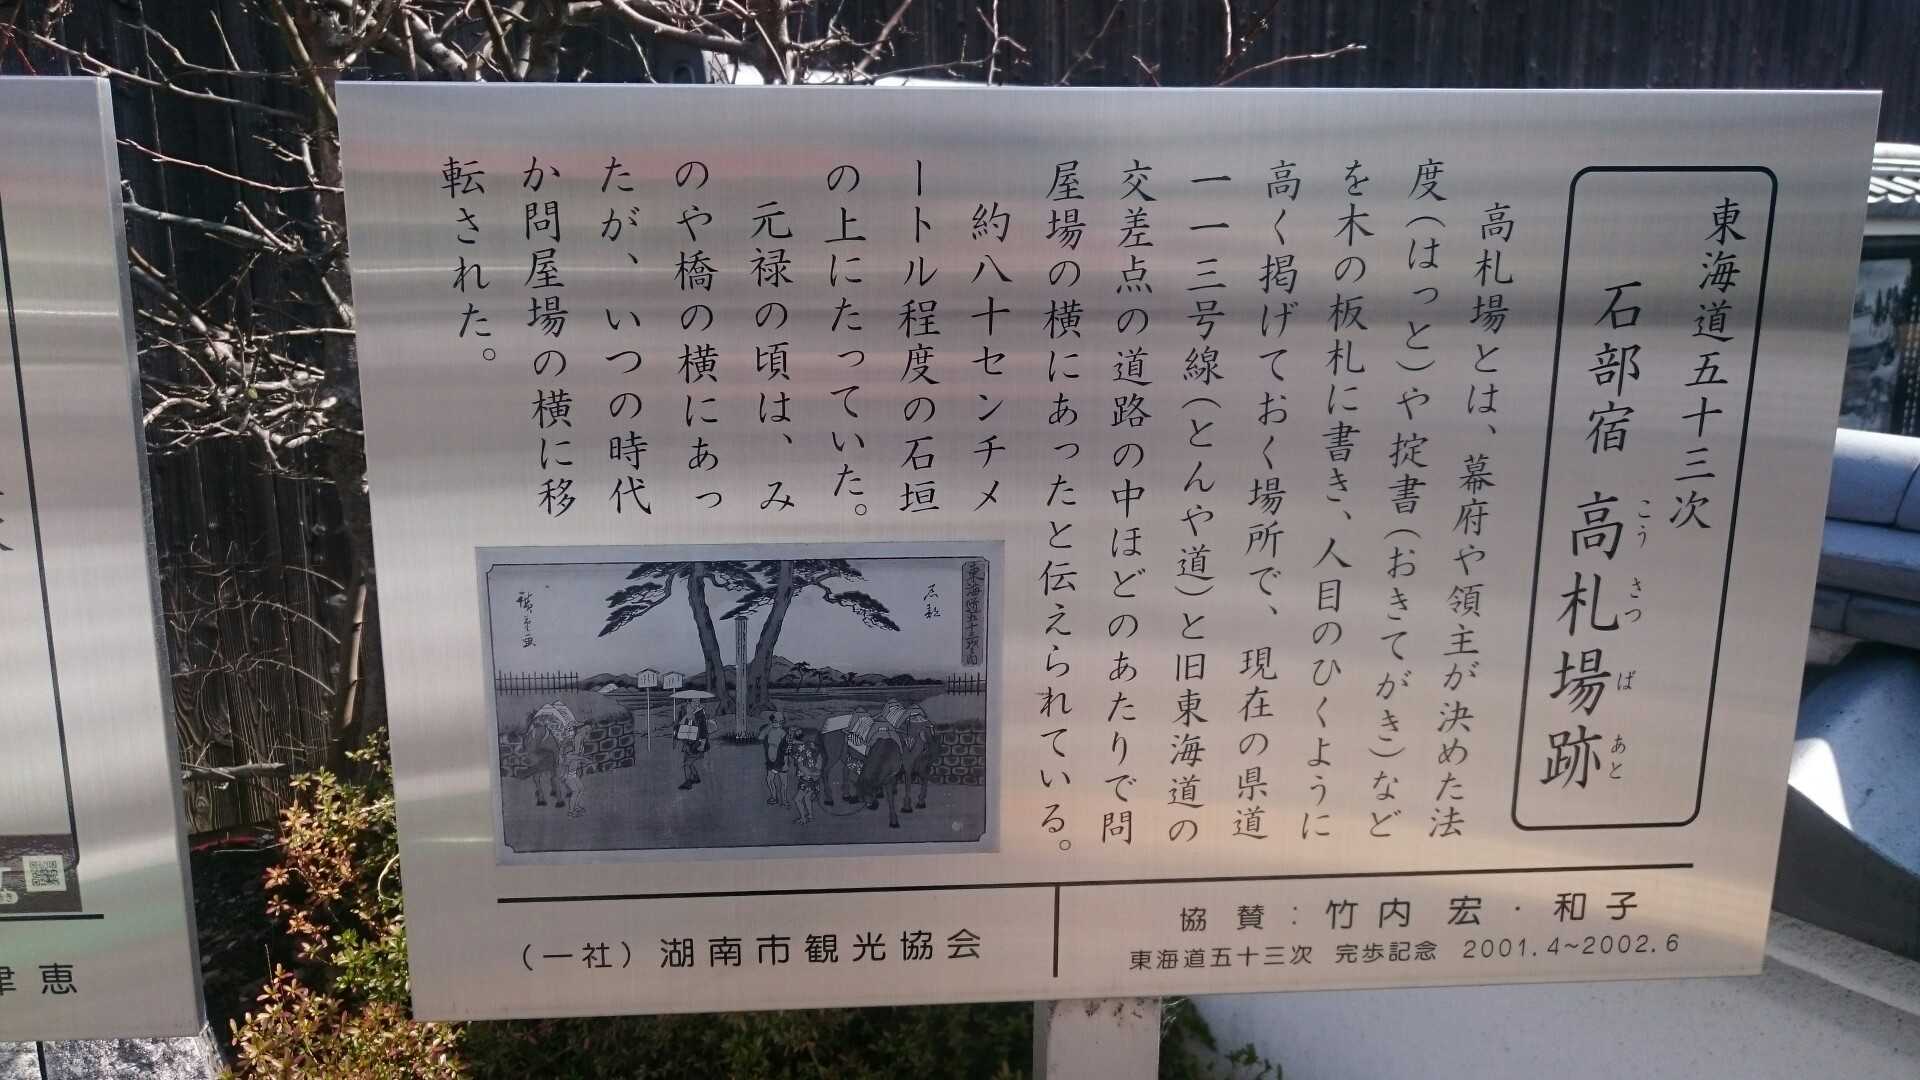 東海道五十三次
石部宿 高札場跡
こう さつ ば あと
高札場とは、幕府や領主が決めた法
度(はっと)や掟書(おきてがき)など
を木の板札に書き、人目のひくように
高く掲げておく場所で、現在の県道
一一三号線(とんや道)と旧東海道の
交差点の道路の中ほどのあたりで問
屋場の横にあったと伝えられている。
約八十センチメ
ートル程度の石垣
の上にたっていた。
元禄の頃は、み
のや橋の横にあっ
たが、いつの時代
か問屋場の横に移
転された。
東海道五十三次之内
石部
廣重画
協賛:竹内 宏・和子
東海道五十三次 完歩記念 2001.4~2002.6
(一社)湖南市観光協会
津恵